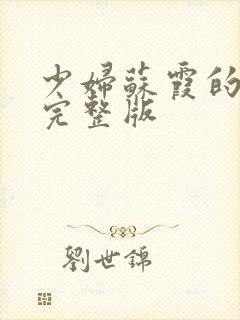 少婦蘇霞的
完整版
劉世錦